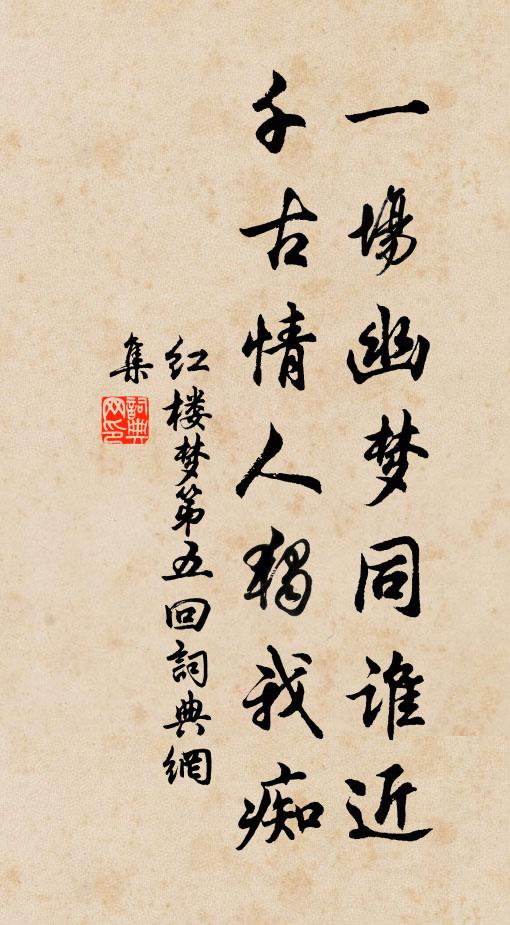 一場幽梦同谁近
千古情人獨我痴
红楼梦第五回詞典網
集
詞典網印